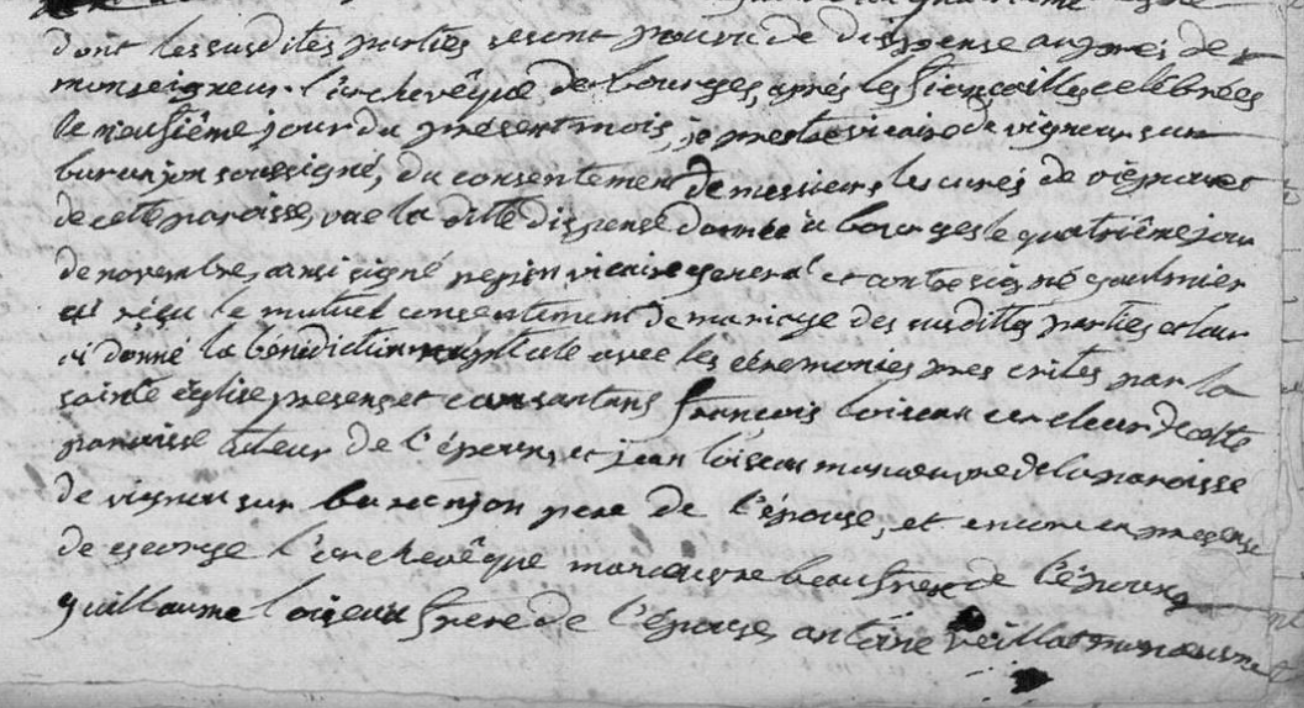 dont les susdites parties se sont pourvu de dispense auprés de
monseigneur l'archevêque de bourges, aprés les fiançailles celébrées
le neufiême jour du présent mois, je prestre vicaire de vigneux sur
baranjon soussigné, du consentement de messieurs les curés de
de cette paroisse, vue la ditte dispense donnée à bourges le quatriême jour
de novembre, ainsi signé vicaire general et contresigné gaulmier
ai réçu le mutuel consentement de mariage des susdittes parties et leur
ai donné la bénédiction nuptiale avec les céremonies prescrites par la
sainte église presens et consentans françois loiseau cercleur de cette
paroisse tuteur de l'époux, et jean loiseau manoeuvre de la paroisse
de vigneu sur baranjon pere de l'épouse, et encore en presence
de george l'archevêque manoeuvre beaufrere de l'époux,
guillaume loiseau frere de l'épouse, antoine veillat manoeuvre